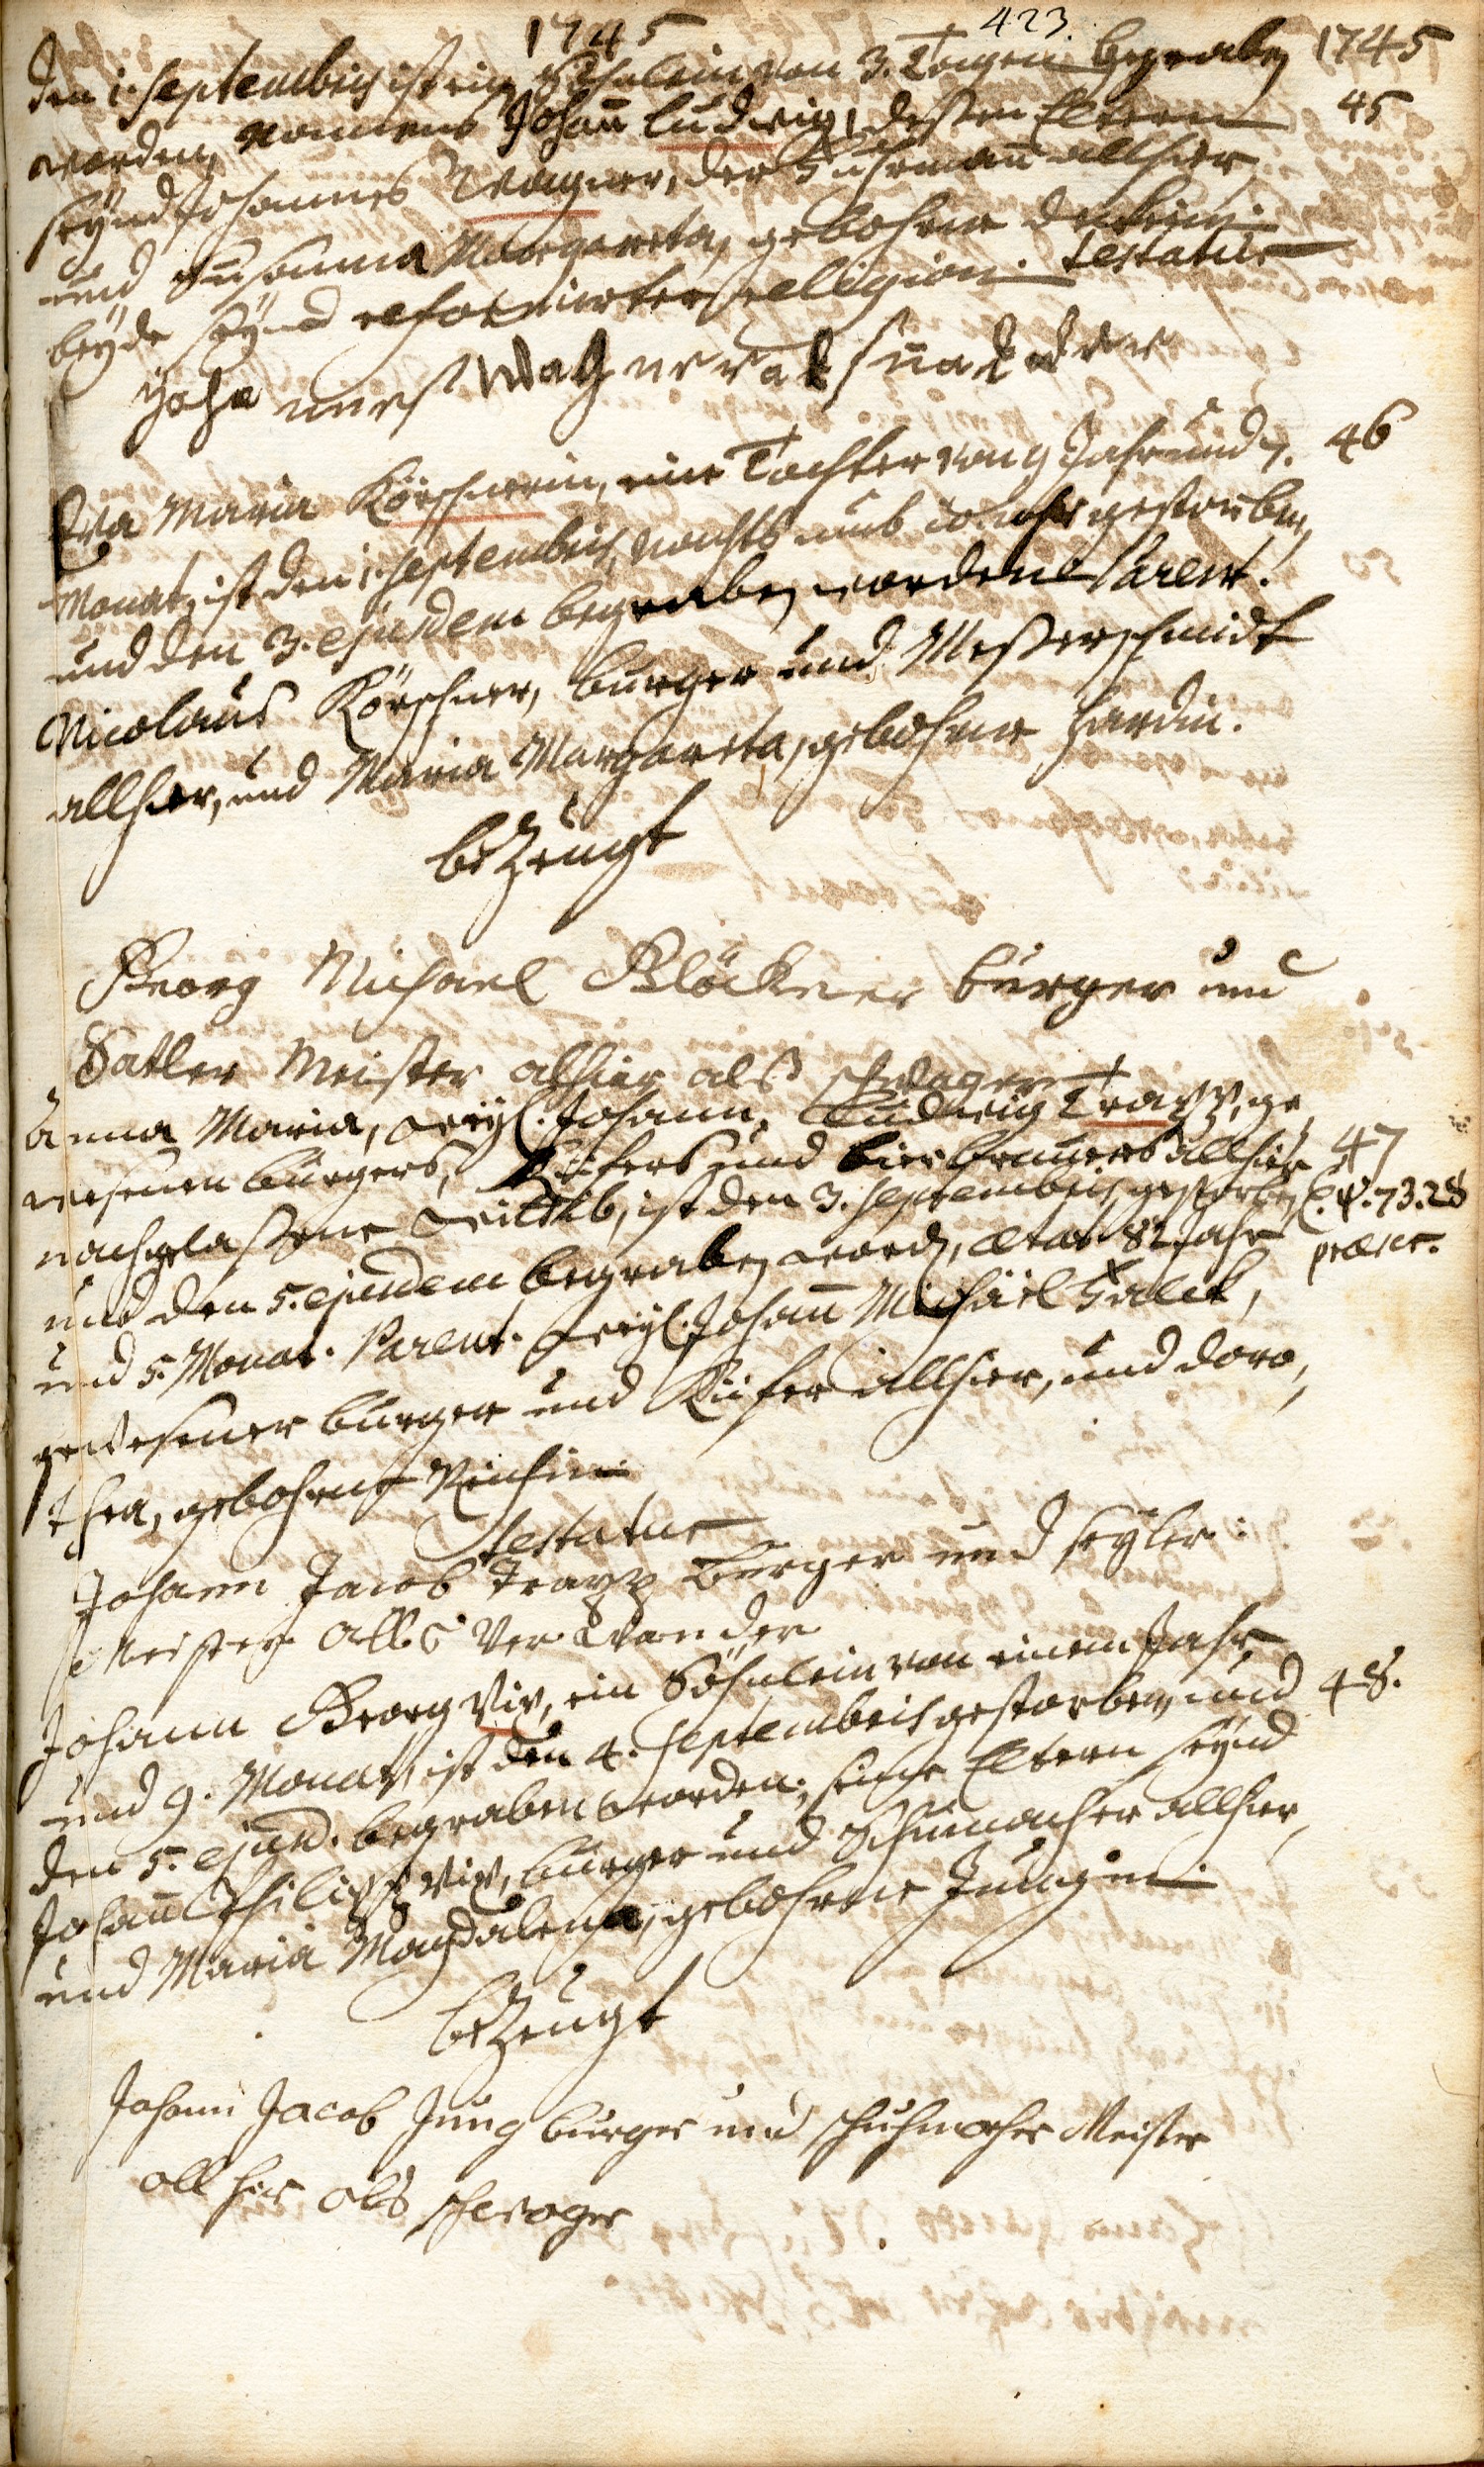 423.
1745
den 1. Septembris ist ein Söhnlein von 3. Tagen begraben 1745
worden, Nammens Johann Ludwig, dessen Eltern 45
seynd Johannes Wagner, der Fuhrmann allhier
und Susanna Margareta, gebohrne
beyde seynd reformirter Religion. Testatur
Yohannes Wagner vatter
Eva Maria Körschnerin, eine Tochter von 9 Jahr und 7. 46
Monat, ist den 1. Septembris, nachts umb 10 uhr gestorben,
und den 3. ejusdem begraben worden. Parent:
Nicolaus Körschner, burger und Messerschmidt
allhier, und Maria Margareta, gebohrne Hardin.
bezeugt
Georg Michael Blöckner burger und
Satler Meister alhier als schwager
Anna Maria, weyl. Johann Ludwig Trapp, ge,
wesenen burgers, Küfers und bierbrauers allhier 47
nachgelassene Wittib, ist den 3. Septembris gestorben, C. Ps. 73. 28
und den 5. ejusdem begraben word, aetat. 82 Jahr
und 5. Monat. Parent. weyl. Johann Michael Falck,
gewesener burger und Küfer allhier, und Doro,
thea, gebohrne
testatur
Johann Jacob Trapp Burger und seyler:
Meister allß Verwander
Johann Georg Vix, ein Söhnlein von einem Jahr, 48.
und 9. Monat, ist den 4. Septembris gestorben, und
den 5. ejusd. begraben worden; seine Eltern seynd
Johann Philipp Vix, burger und Schumacher allhier,
und Maria Magdalena, gebohrne Jungin.
bezeugt
Johann Jacob Jung burger und schuhmacher Meister
all hier als schwager